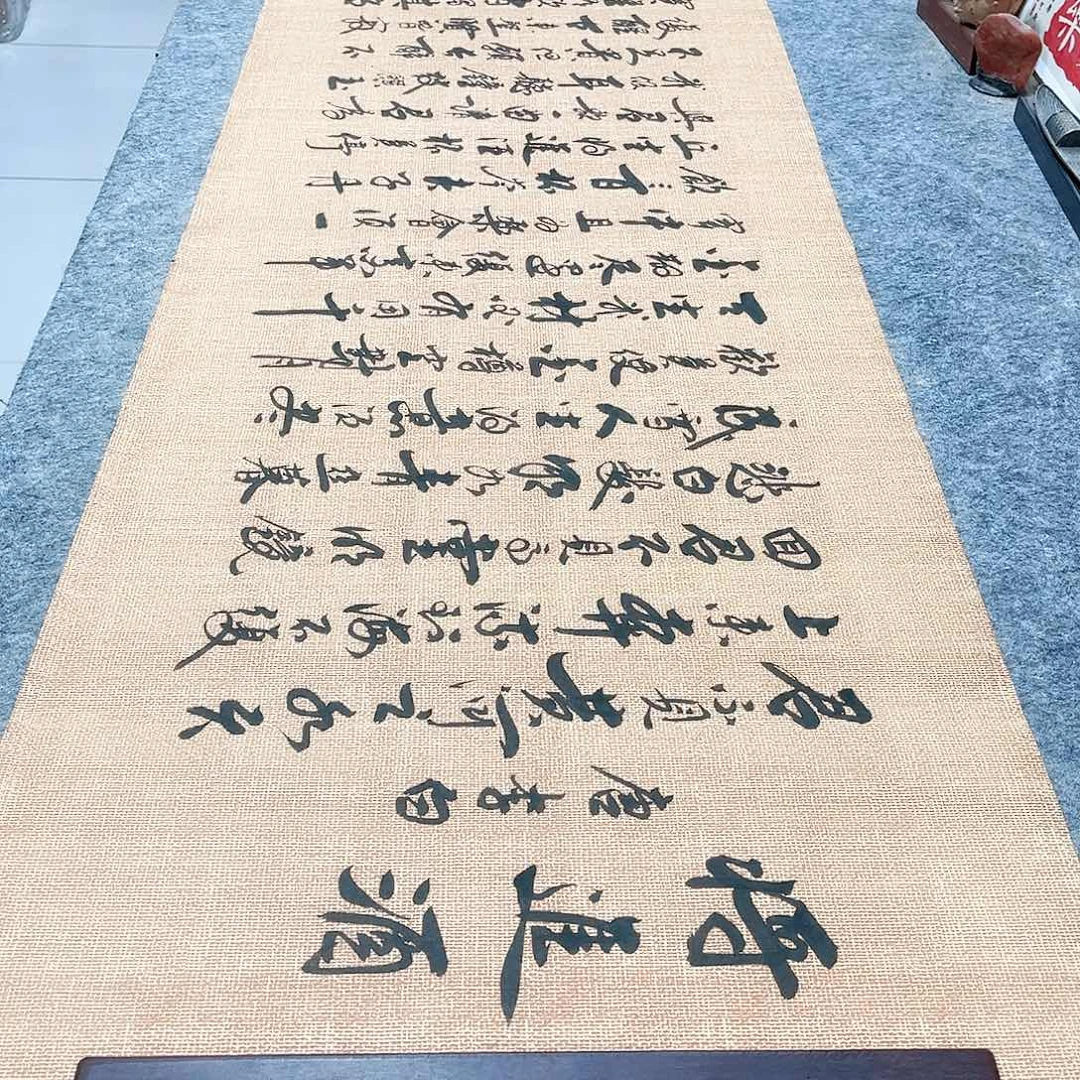 將進酒
唐李白
君不見黃河之水天
上來奔流到海不復
回君不見高堂明鏡
悲白髮朝如青絲暮
成雪人生得意須盡
歡莫使金樽空對月
天生我材必有用千
金散盡還復來烹羊
宰牛且為樂會須一
飲三百杯岑夫子丹
丘生將進酒杯莫停
與君歌一曲請君為
不足貴但願長醉不
復醒古來聖賢皆寂